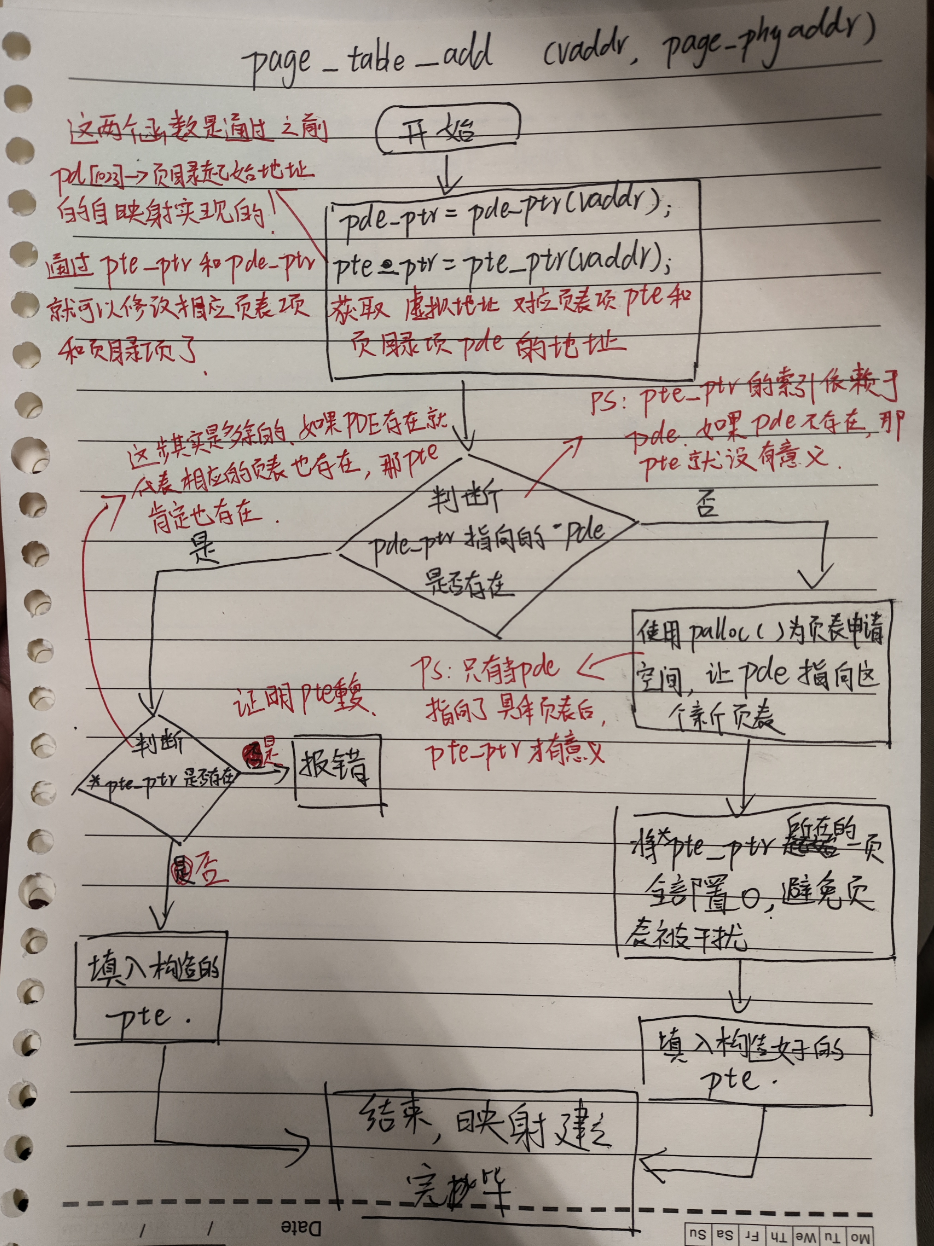 page_table_add (vaddr, page_phyaddr)
开始
这两个函数是通过之前
pd[1023]→页目录起始地址
的的自映射实现的!
通过 pte_ptr 和 pde_ptr
就可以修改相应页表项
和页目录项了.
pde_ptr = pde_ptr(vaddr);
pte_ptr = pte_ptr(vaddr);
获取 虚拟地址 对应页表项 pte 和
页目录项 pde 的地址
PS: pte_ptr 的索引依赖于
pde. 如果 pde 不存在, 那
pte 就没有意义.
这步其实是多余的、如果PDE存在就
代表相应的页表也存在, 那pte
肯定也存在.
判断
pde_ptr 指向的 pde
是否存在
是
否
使用 palloc()为页表申请
空间, 让 pde 指向这
个新页表
PS: 只有当pde
指向了具体页表后,
pte_ptr 才有意义
证明pte重复.
判断
*pte_ptr 是否存在
是
报错
否
将*pte_ptr 所在的一页
全部置 0, 避免页
表被干扰
填入构造的
pte.
填入构造好的
pte.
结束, 映射建立
完毕
Date / /
Mo Tu We Th Fr Sa Su